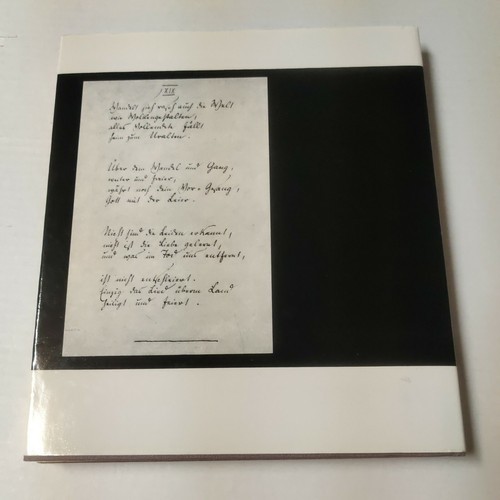 XIX
Wandelt sich rasch auch die Welt
wie Wolkengestalten,
alles Vollendete fällt
heim zum Uralten.
Über dem Wandel und Gang,
weiter und freier,
währt noch dein Vor-Gesang,
Gott mit der Leier.
Nicht sind die Leiden erkannt,
nicht ist die Liebe gelernt,
und was im Tod uns entfernt,
ist nicht entschleiert.
Einzig das Lied überm Land
heiligt und feiert.